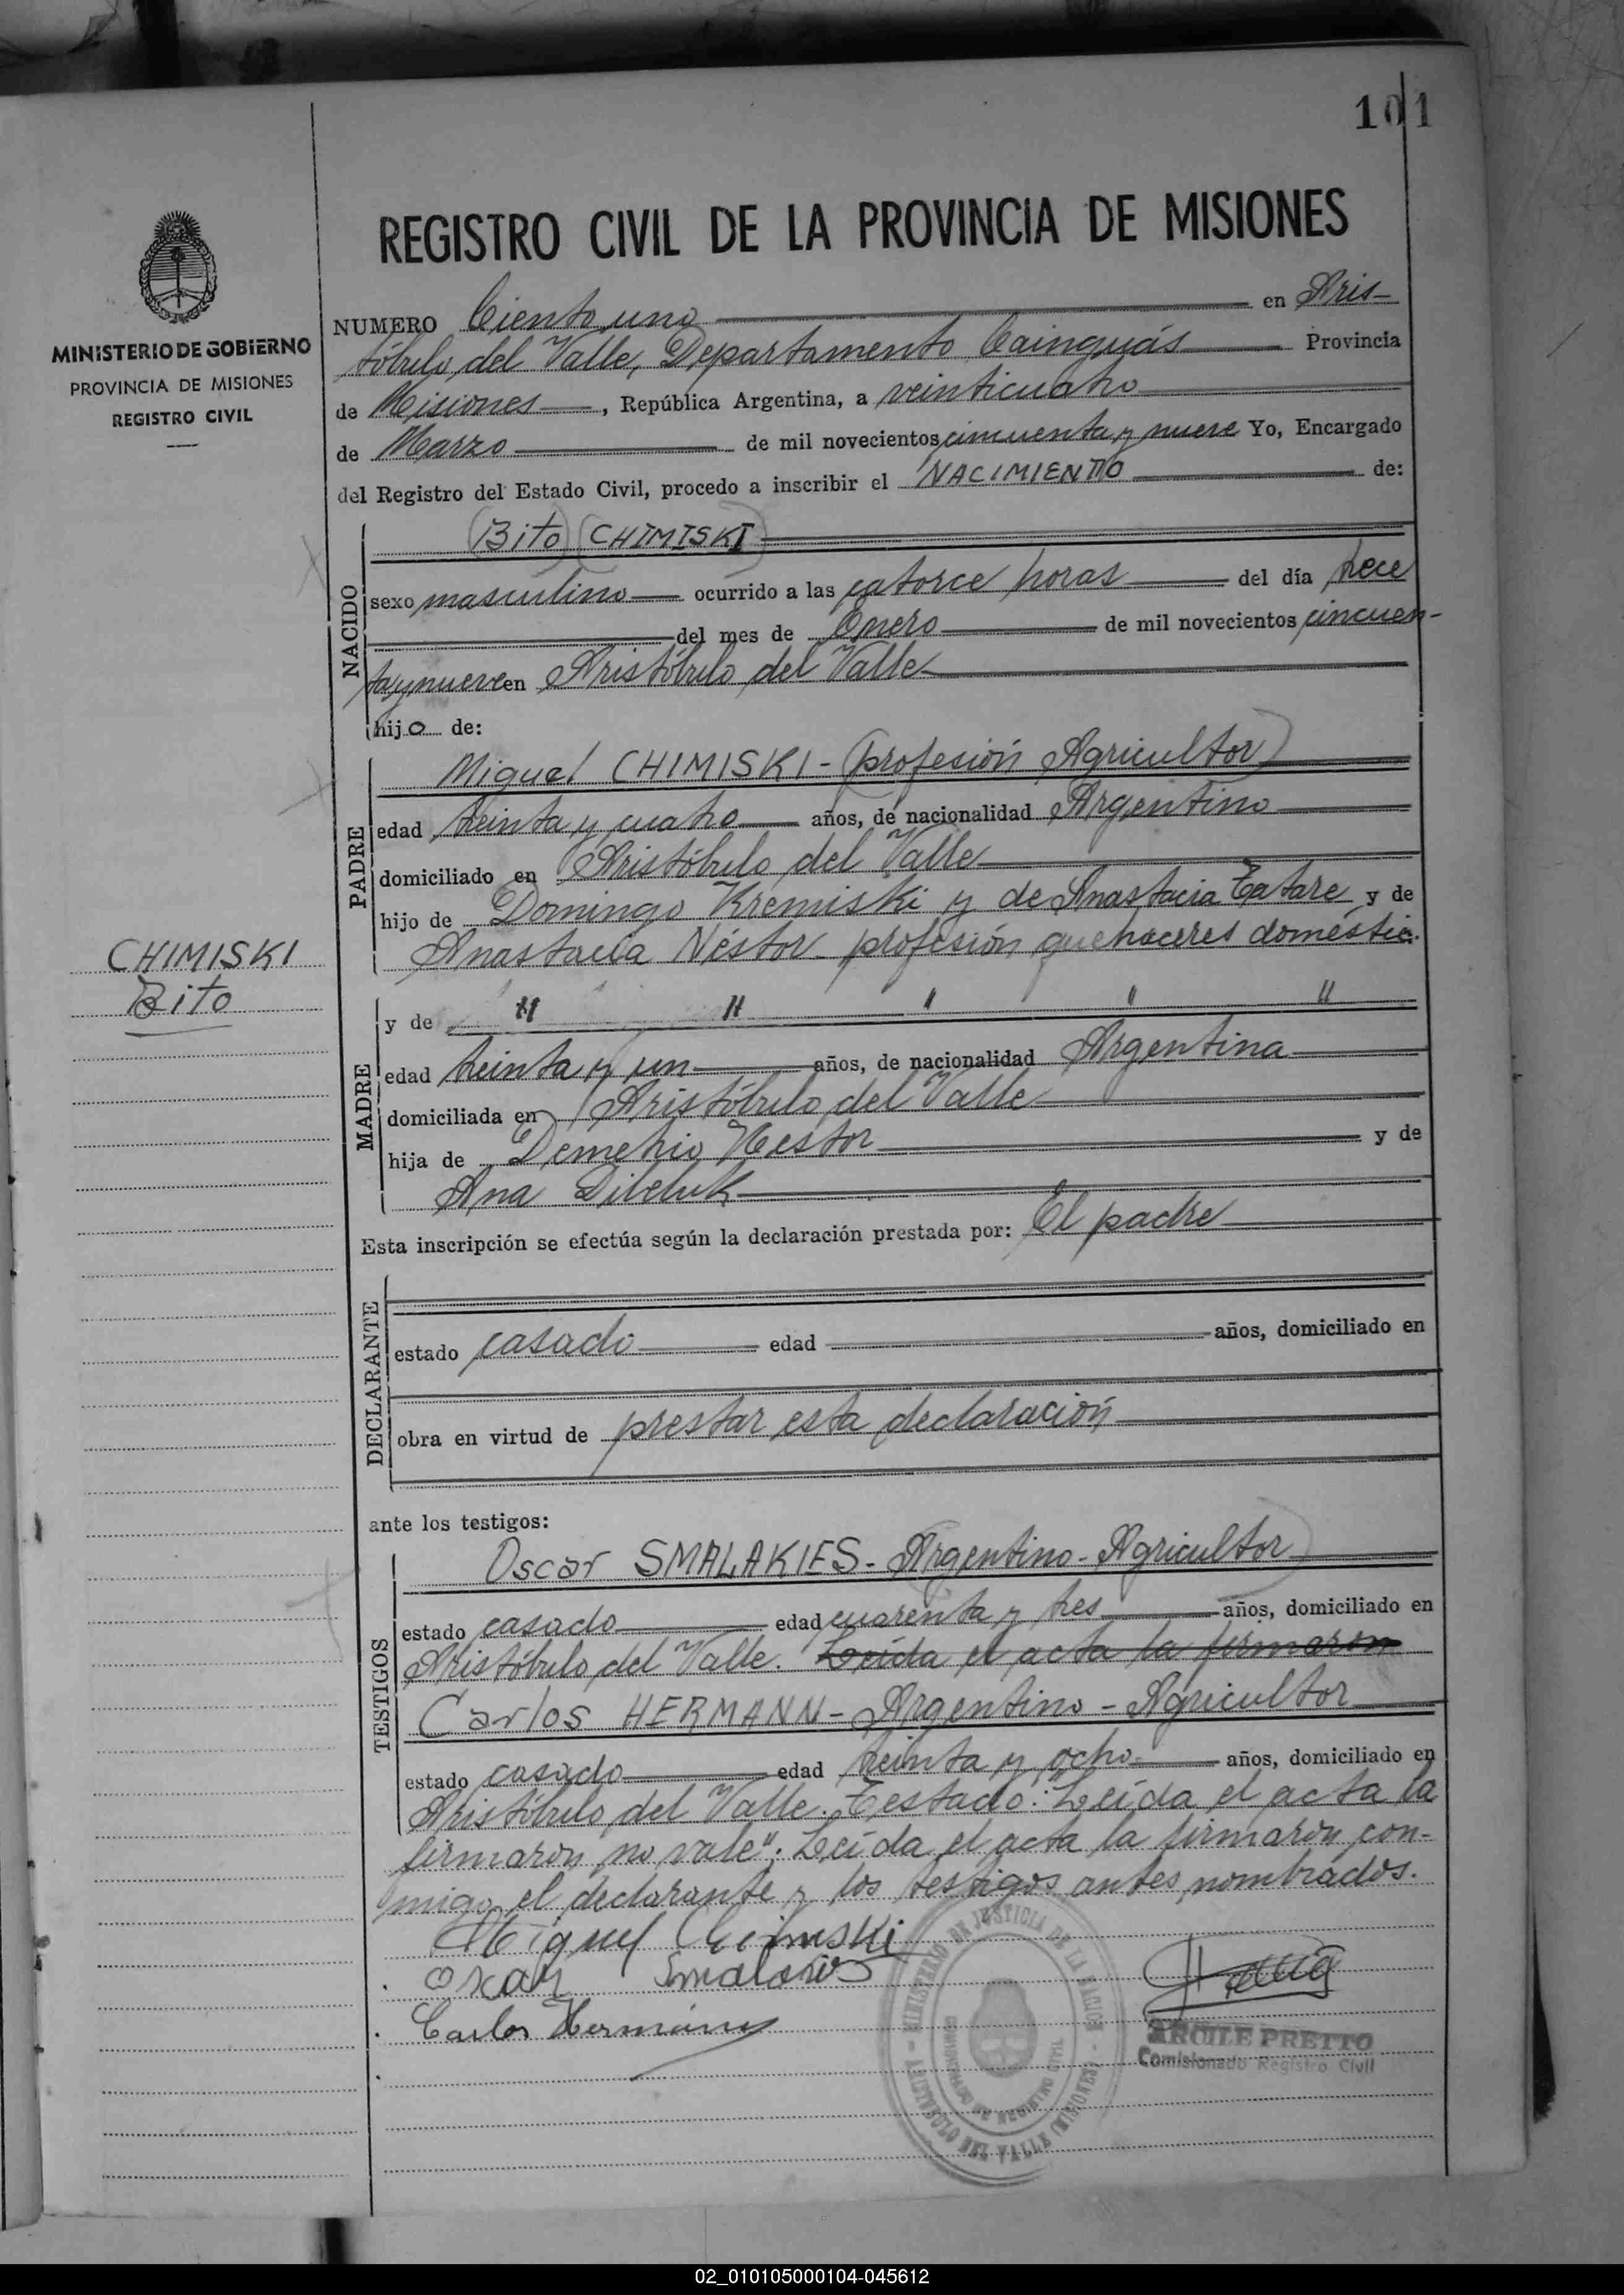 101
REGISTRO CIVIL DE LA PROVINCIA DE MISIONES
MINISTERIO DE GOBIERNO
PROVINCIA DE MISIONES
REGISTRO CIVIL
NUMERO Ciento uno en Aris-
tóbulo del Valle, Departamento Cainguás Provincia
de Misiones, República Argentina, a veinticuatro
de Marzo de mil novecientos cincuenta y nueve Yo, Encargado
del Registro del Estado Civil, procedo a inscribir el NACIMIENTO de:
NACIDO
(Bito) (CHIMISKI)
sexo masculino ocurrido a las catorce horas del día trece
del mes de Enero de mil novecientos cincuen-
ta y nueve en Aristóbulo del Valle
hijo de:
PADRE
Miguel CHIMISKI - (profesión Agricultor)
edad treinta y cuatro años, de nacionalidad Argentino
domiciliado en Aristóbulo del Valle
hijo de Domingo Kremiski y de Anastacia Tatare y de
Anastacia Néstor profesión quehaceres doméstic.
CHIMISKI
Bito
MADRE
y de " " " " "
edad treinta y un años, de nacionalidad Argentina
domiciliada en Aristóbulo del Valle
hija de Demetrio Nestor y de
Ana
Esta inscripción se efectúa según la declaración prestada por: El padre
DECLARANTE
estado casado edad años, domiciliado en
obra en virtud de prestar esta declaración
ante los testigos:
TESTIGOS
Oscar SMALAKIES - Argentino - Agricultor)
estado casado edad cuarenta y tres años, domiciliado en
Aristóbulo del Valle. Leída el acta la firmaron
Carlos HERMANN - Argentino - Agricultor
estado casado edad treinta y ocho años, domiciliado en
Aristóbulo del Valle. Testado: "Leída el acta la
firmaron no vale". Leída el acta la firmaron con-
migo el declarante y los testigos antes nombrados.
Miguel Chimski
Oxar
Carlos Hermann
MINISTERIO DE JUSTICIA DE LA NACION
ARISTOBULO DEL VALLE (MISIONES)
ARCILE PRETTO
Comisionado Registro Civil
02_010105000104-045612